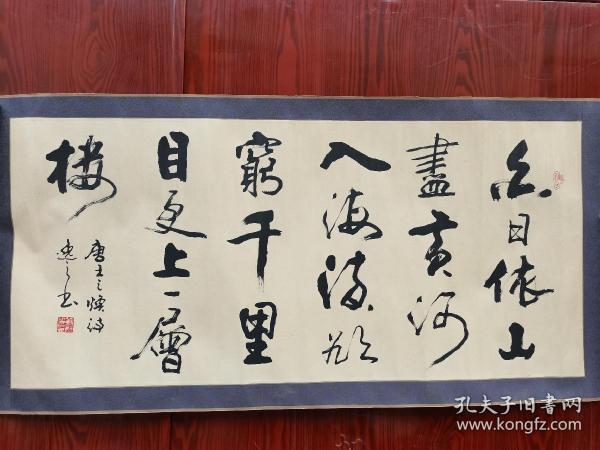 白日依山
盡黄河
入海流欲
窮千里
目更上一層
樓
唐王之焕詩
书
孔夫子旧書网
www.kongfz.com